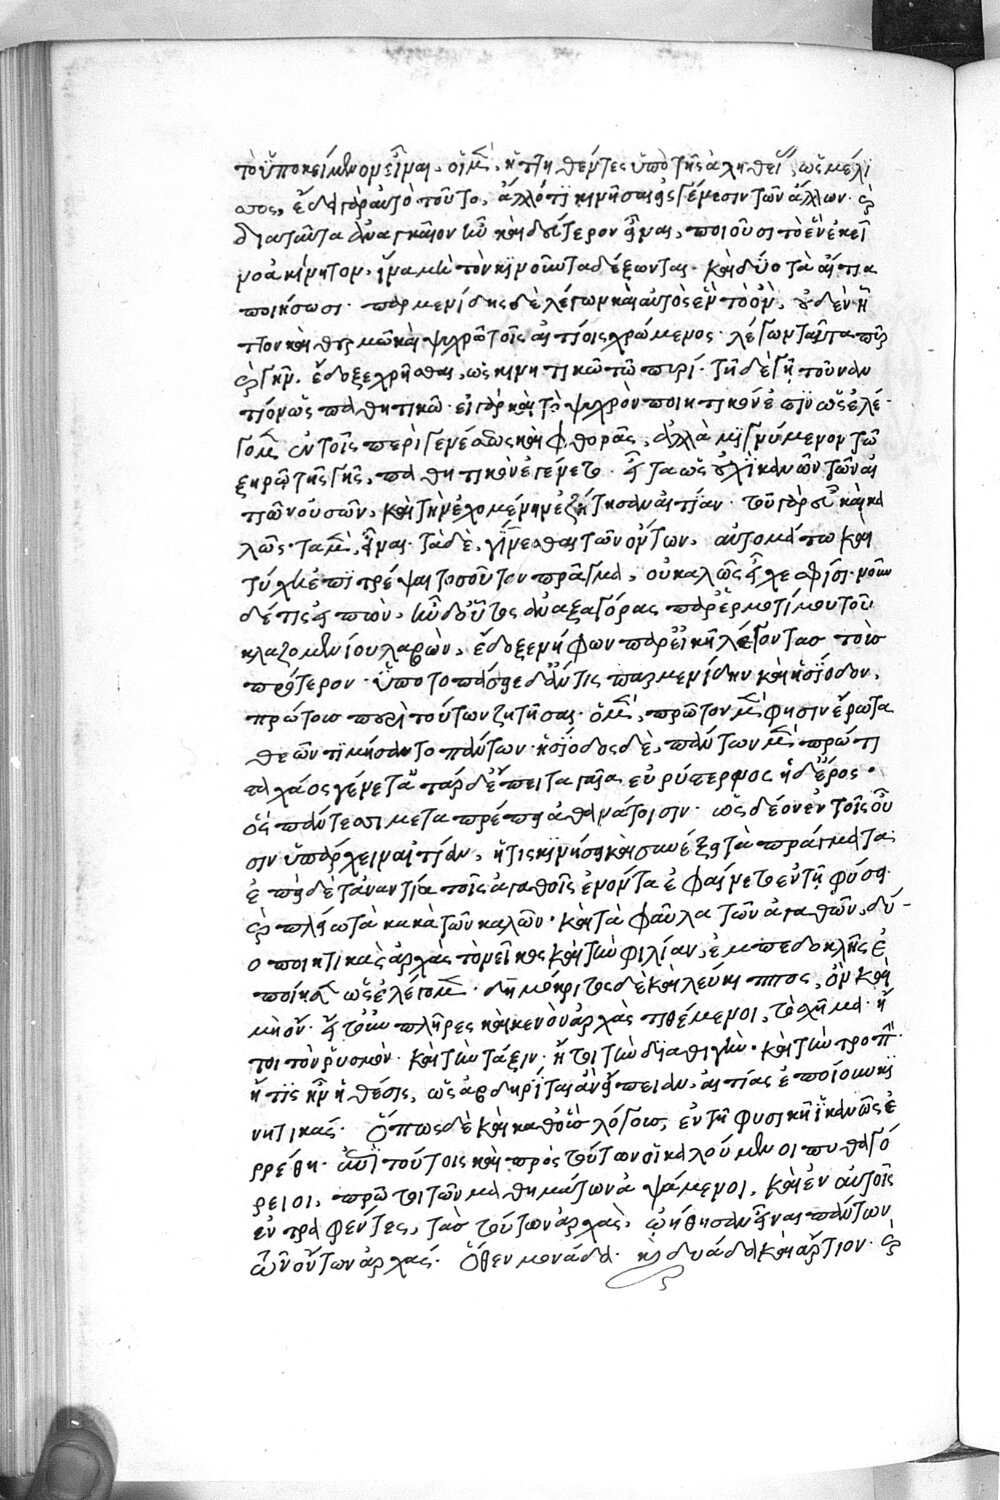 τὸ ὑποκείμενον εἶναι. οἱ μὲν, ἡττηθέντες ὑπὸ τῆς ἀληθείας, ὡς μέλι
σσος, ἓν γὰρ αὐτὸ τοῦτο, ἀλλ' ὅτι κινῆσαι γένεσιν τῶν ἄλλων. καὶ
διαταῦτα ἀναγκαῖον ὂν καὶ δεύτερον εἶναι, ποιοῦσι τὸ ἓν ἐκεῖ
νο ἀκίνητον, ἵνα μὴ τὸν κινοῦντα δέξωνται. καὶ δύο τὰ αἴτια
ποιήσωσι. παρμενίδης δὲ λέγων καὶ αὐτὸς ἓν τὸ ὄν, οὐδὲν ἧ
ττον καὶ θερμῶ καὶ ψυχρῶ τοῖς αἰτίοις χρώμενος. λέγων ταῦτα πῦρ
καὶ γῆν. ἔδοξε χρῆσθαι, ὡς κινητικῶ τῶ πυρί. τῆ δὲ γῆ τοὐναν
τίον ὡς παθητικῶ. εἰ γὰρ καὶ τὸ ψυχρὸν ποιητικόν ἐστιν ὡς ἐλέ
γομεν ἐν τοῖς περὶ γενέσεως καὶ φθορᾶς, ἀλλὰ μιγνύμενον τῶ
ξηρῶ τῆς γῆς, παθητικὸν ἐγένετο. εἶτα ὡς οὐχ ἱκανῶν τῶν αἰ
τιῶν οὐσῶν, καὶ τὴν ἐχομένην ἐζήτησαν αἰτίαν. τοῦ γὰρ εὖ καὶ κα
λῶς. τὰ μὲν, εἶναι. τὰ δὲ, γίνεσθαι τῶν ὄντων, αὐτομάτω καὶ
τύχη ἐπιτρέψαι τοσοῦτον πρᾶγμα, οὐ καλῶς εἶχε φησι. νοῦν
δέ τις εἰπὼν, ἦν δ' οὗτος ἀναξαγόρας παρ' ἑρμοτίμου τοῦ
κλαζομενίου λαβὼν, ἔδοξε νήφων παρ' εἰκῆ λέγοντας τοὺς
πρότερον. ὑποτοπάσειε δ' ἄν τις παρμενίδην καὶ ἡσίοδον,
πρώτους περὶ τούτων ζητῆσαι. ὁ μὲν, πρῶτον μὲν φησιν ἔρωτα
θεῶν τιμήσαντο πάντων. ἡσίοδος δὲ, πάντων μὲν πρώτι
τα χάος γένετ' αὐτάρ ἔπειτα γαῖα εὐρύστερνος ἠδ' ἔρος.
ὃς πάντεσσι μεταπρέπει ἀθανάτοισιν. ὡς δέον ἐν τοῖς οὖ
σιν ὑπάρχειν αἰτίαν, ἥτις κινήσει καὶ συνέξει τὰ πράγματα.
ἐπεὶ δὲ τἀναντία τοῖς ἀγαθοῖς ἐνόντα ἐφαίνετο ἐν τῆ φύσει.
καὶ πλείω τὰ κακὰ τῶν καλῶν. καὶ τὰ φαῦλα τῶν ἀγαθῶν, δύ-
ο ποιητικὰς ἀρχὰς τὸ νεῖκος καὶ τὴν φιλίαν, ἐμπεδοκλῆς ἐ
ποίησεν ὡς ἐλέγομεν. δημόκριτος δὲ καὶ λεύκιππος, ὂν καὶ
μὴ ὄν. ἤτοι πλῆρες καὶ κενὸν ἀρχὰς τιθέμενοι, τὸ σχῆμα. ἤ
τοι τὸν ῥυσμόν. καὶ τὴν τάξιν. ἤτοι τὴν διαθιγήν. καὶ τὴν τροπήν.
ἥτις ἦν ἡ θέσις, ὡς ἀβδηρῖται ἂν εἴποιεν, αἰτίας ἐποίουν κι
νητικάς. ὅπως δὲ καὶ καθ' οἵους λόγους, ἐν τῆ φυσικῆ ἱκανῶς ἐ
ρρέθη. ἅμα τούτοις καὶ πρὸς τούτων οἱ καλούμενοι πυθαγό
ρειοι, πρῶτοι τῶν μαθημάτων ἁψάμενοι, καὶ ἐν αὐτοῖς
ἐντραφέντες, τὰς τούτων ἀρχὰς, ὠήθησαν εἶναι πάντων
τῶν ὄντων ἀρχάς. ὅθεν μονάδα. καὶ δυάδα καὶ ἄρτιον. καὶ